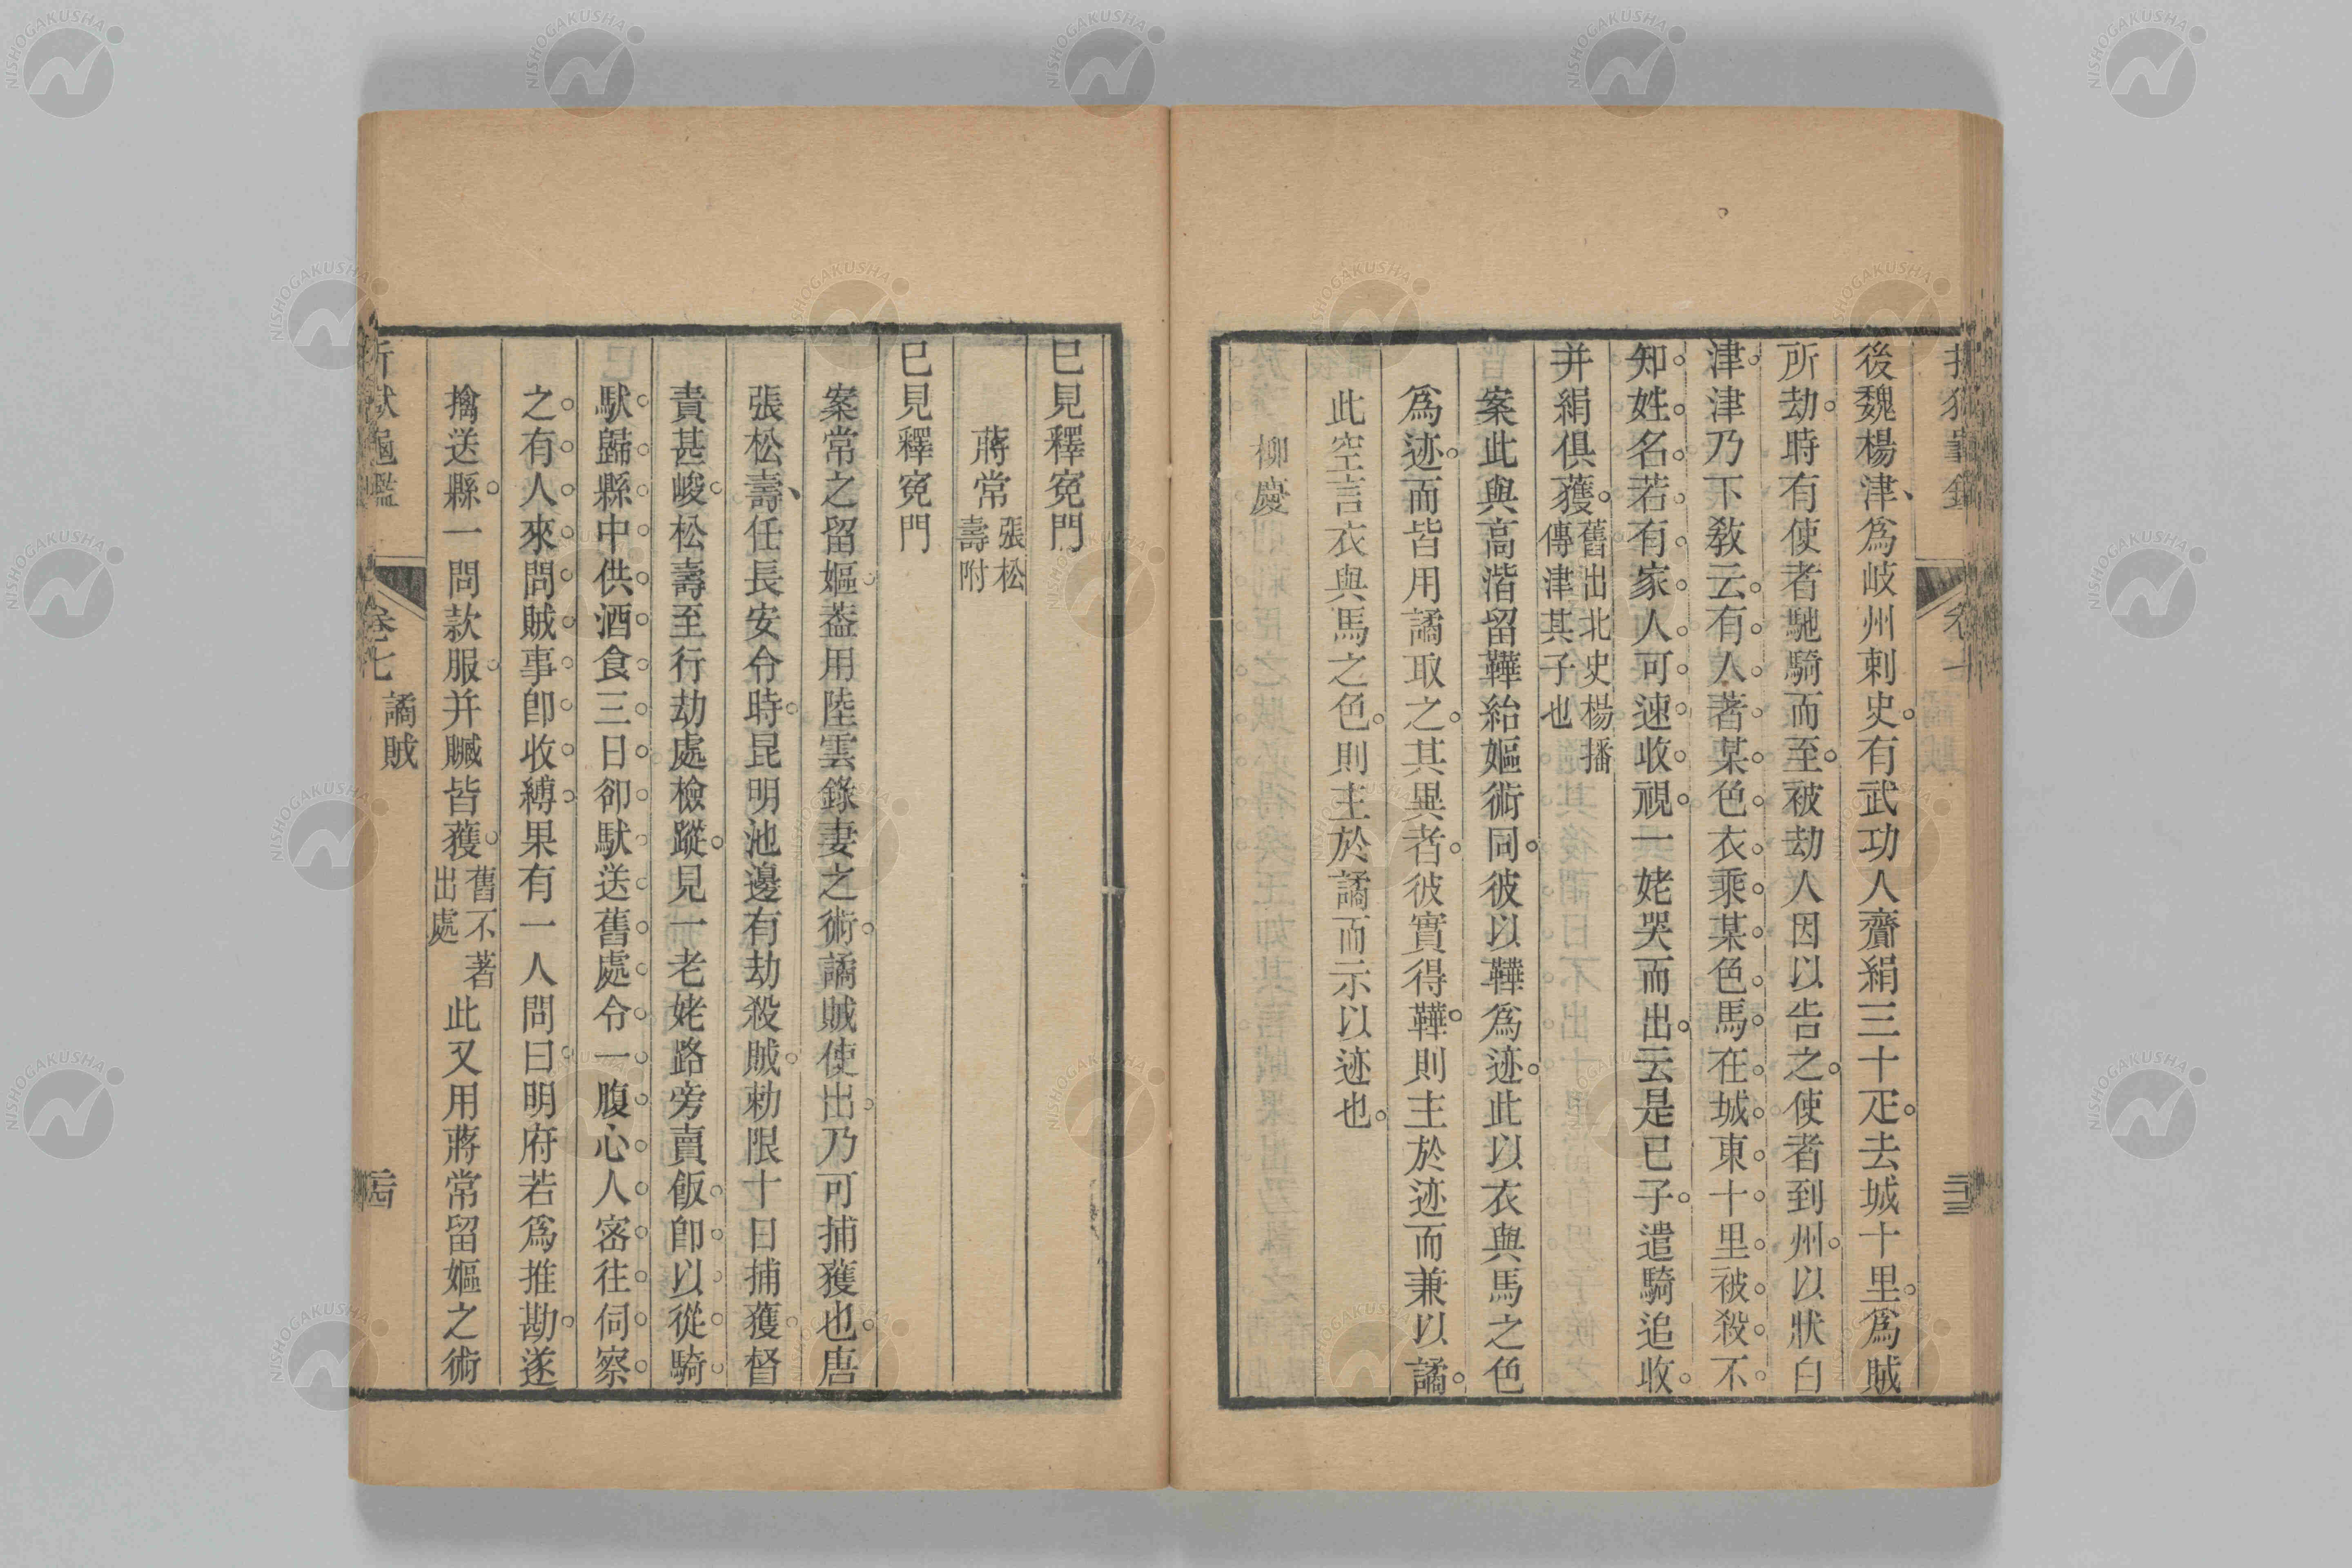 後魏楊津、爲岐州刺史。有武功人齎絹三十疋。去城十里。爲賊
所劫。時有使者馳騎而至。被劫人因以告之。使者到州。以狀白
津。津乃下教云。有。人。著。某。色。衣。乘。某。色。馬。在。城。東。十。里。被。殺。不。
知。姓。名。若。有。家。人。可。速。收。視。一姥哭而出。云是已子。遣騎追收。
并絹俱獲。舊出北史楊播傳津其子也
案此與高湝留鞾紿嫗術同。彼以鞾爲迹。此以衣與馬之色
爲迹。而皆用譎取之。其異者。彼實得鞾。則主於迹而兼以譎。
此空言衣與馬之色。則主於譎而示以迹也。
柳慶
已見釋冤門
蔣常 張松壽附
已見釋冤門
案常之留嫗。葢用陸雲錄妻之術。譎賊使出。乃可捕獲也。唐
張松壽、任長安令。時昆明池邊有劫殺賊。勅限十日捕獲。督
責甚峻。松壽至行劫處檢蹤。見一老姥路旁賣飯。卽。以。從。騎。
馱。歸。縣。中。供。酒。食。三。日。卻。馱。送。舊。處。令。一。腹。心。人。密。往。伺。察。
之。有。人。來。問。賊。事。卽。收。縛。果有一人問曰。明府若爲推勘。遂
擒送縣。一問款服。并贓皆獲。舊不著出處 此又用蔣常留嫗之術
卷七 譎賊